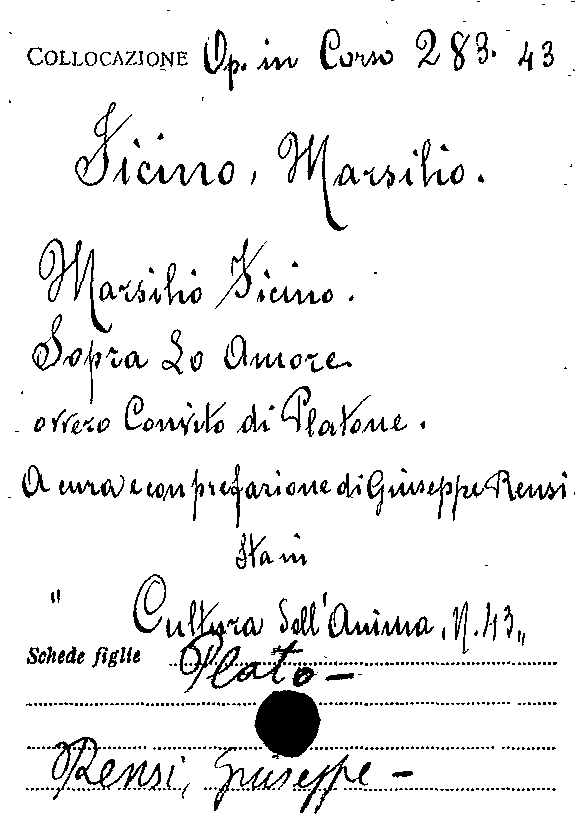 COLLOCAZIONE Op. in Corso 283. 43
Ficino, Marsilio.
Marsilio Ficino.
Sopra Lo Amore
ovvero Convito di Platone.
A cura e con prefazione di Giuseppe Rensi.
Sta in
" Cultura dell'Anima, N. 43 "
Schede figlie Plato -
Rensi, Giuseppe -